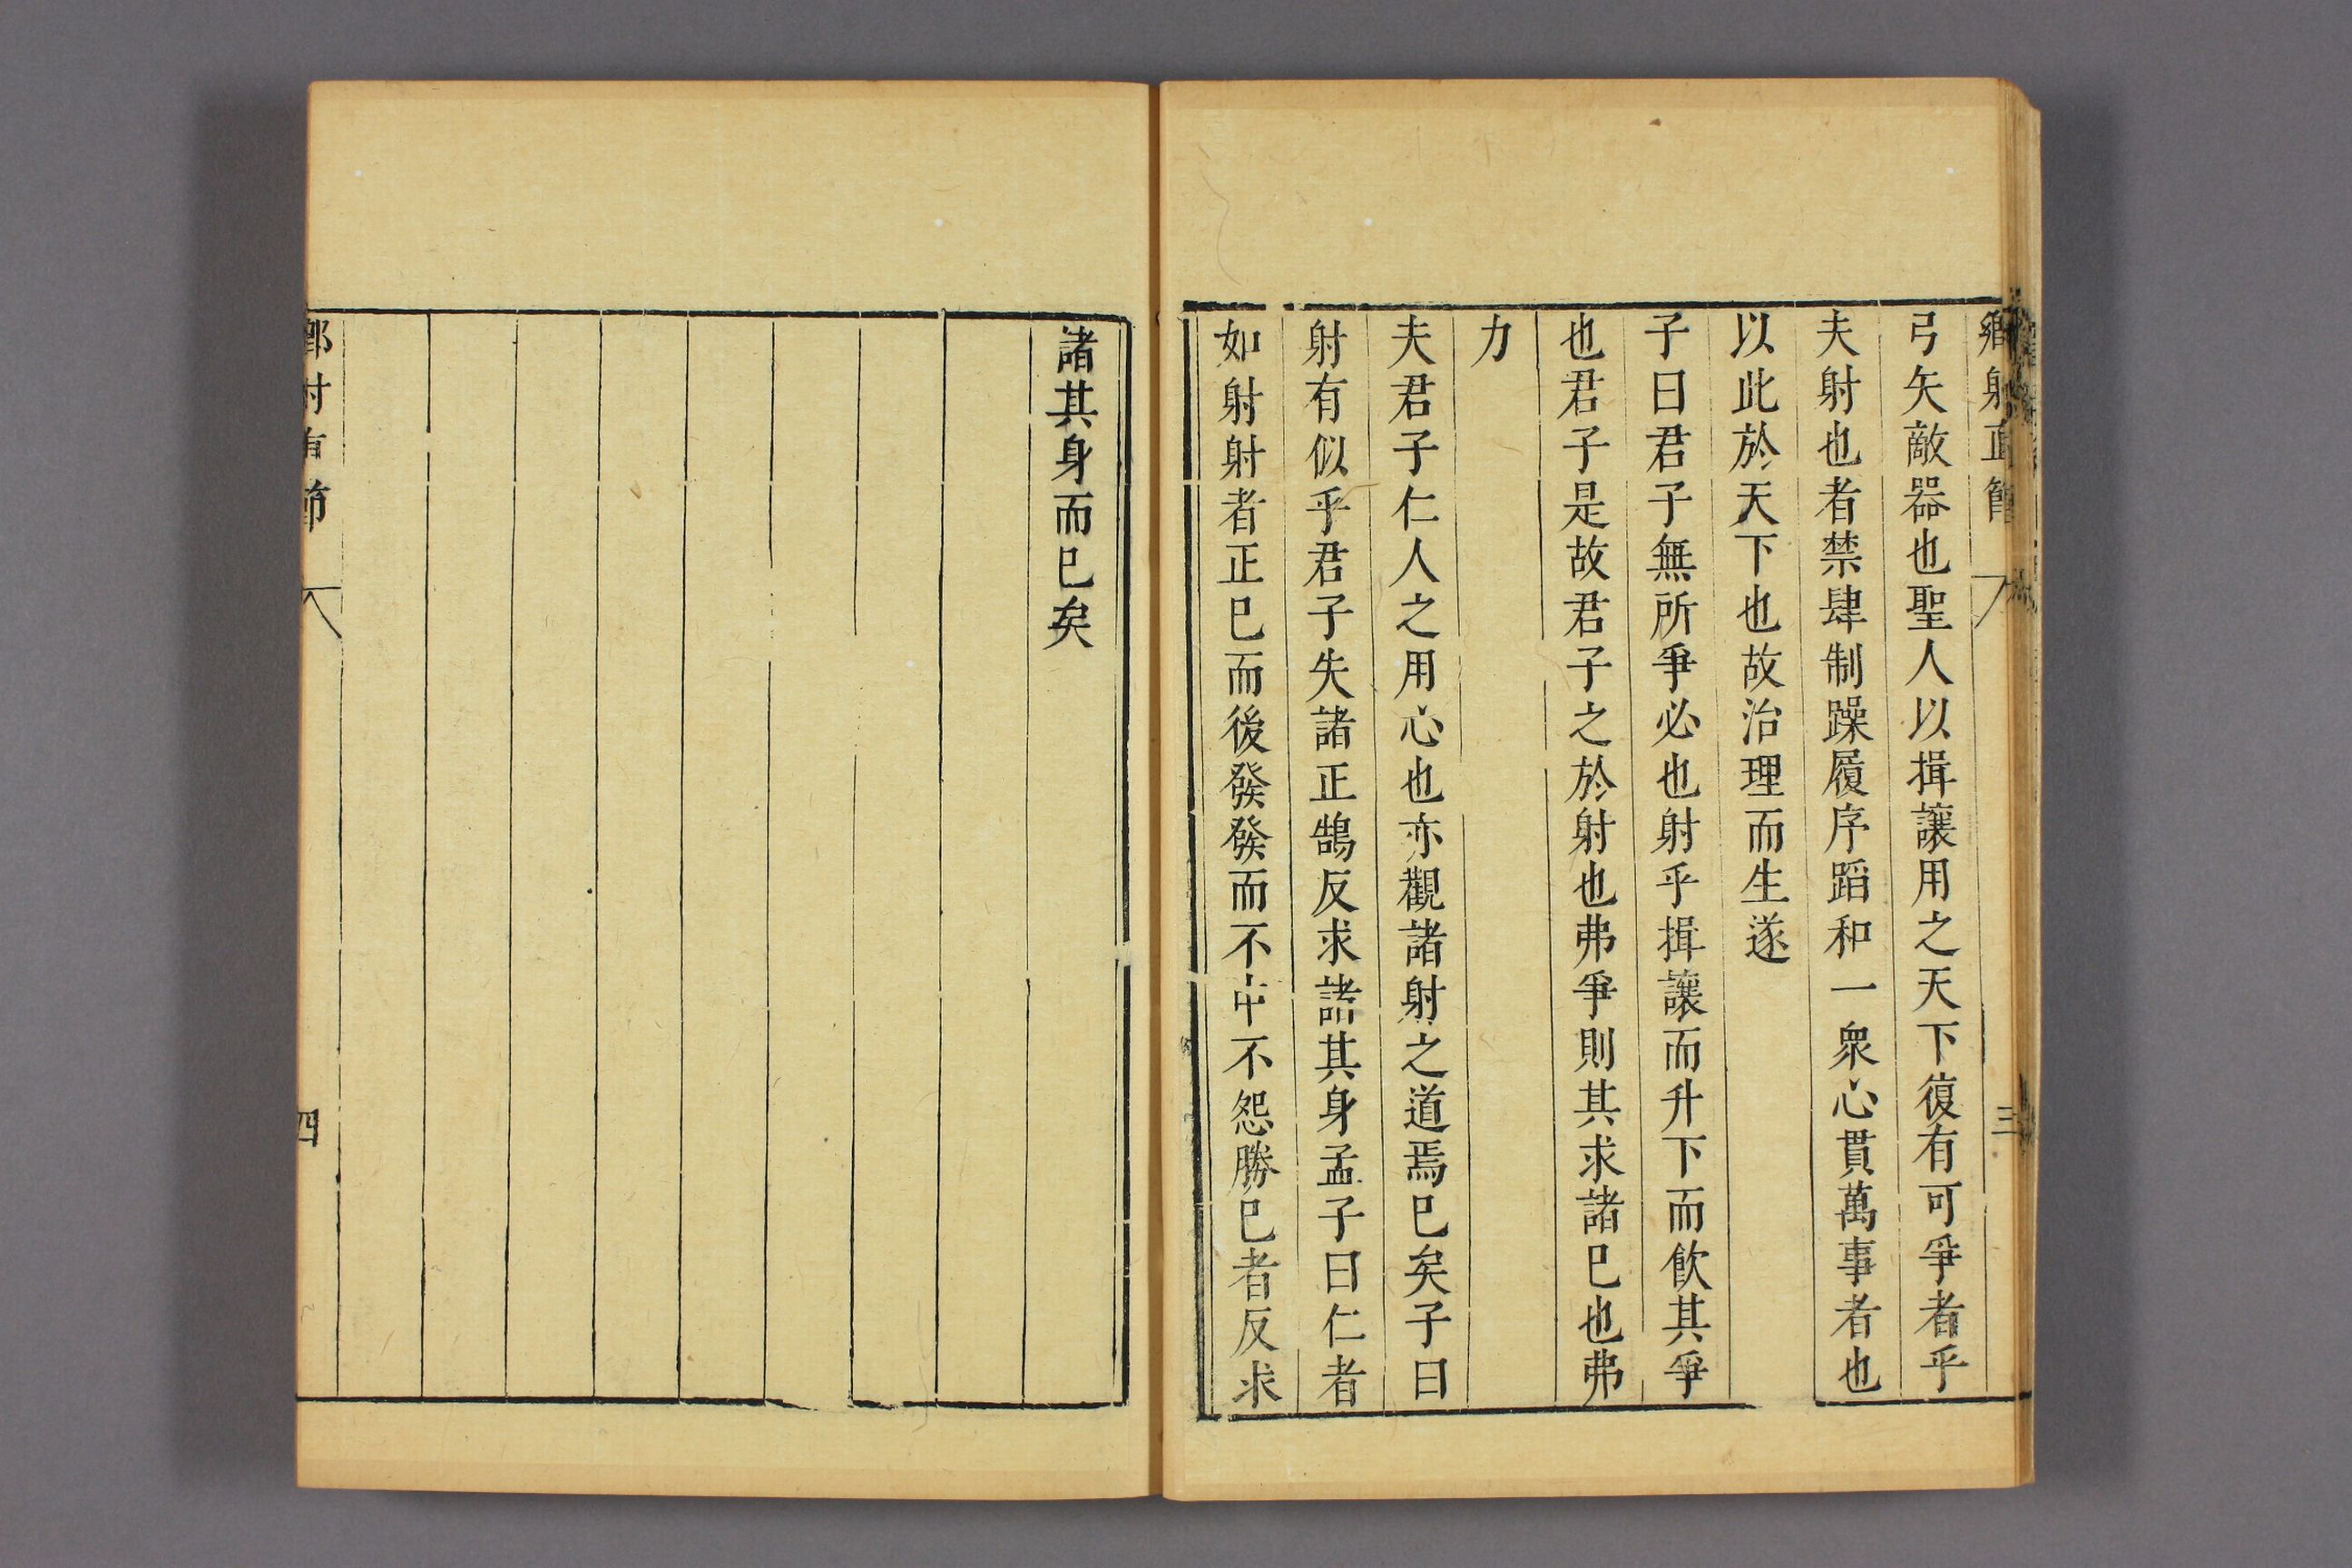 鄉射直節
三
弓矢敵器也聖人以揖讓用之天下復有可爭者乎
夫射也者禁肆制躁履序蹈和一衆心貫萬事者也
以此於天下也故治理而生遂
子曰君子無所爭必也射乎揖讓而升下而飲其爭
也君子是故君子之於射也弗爭則其求諸巳也弗
力
夫君子仁人之用心也亦觀諸射之道焉巳矣子曰
射有似乎君子失諸正鵠反求諸其身孟子曰仁者
如射射者正巳而後發發而不中不怨勝巳者反求
諸其身而巳矣
鄉射直節
四